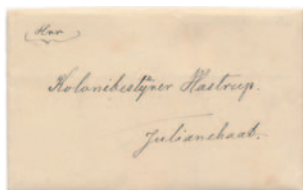 Hrr
Kolonibestÿrer Hastrup.
Julianehaab.